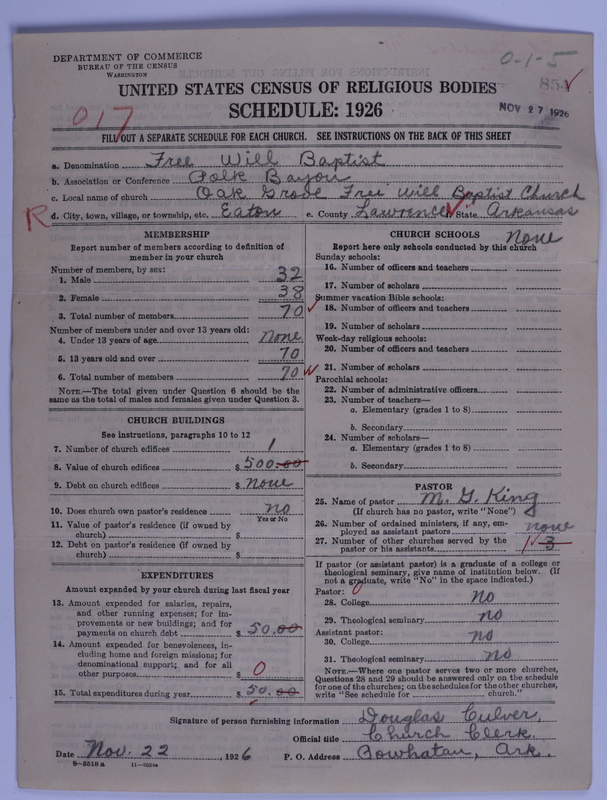 DEPARTMENT OF COMMERCE
BUREAU OF THE CENSUS
WASHINGTON
0-1-5
854
UNITED STATES CENSUS OF RELIGIOUS BODIES
SCHEDULE: 1926
NOV 27 1926
017
FILL OUT A SEPARATE SCHEDULE FOR EACH CHURCH. SEE INSTRUCTIONS ON THE BACK OF THIS SHEET
a. Denomination Free Will Baptist
b. Association or Conference Polk Bayou
c. Local name of church Oak Grove Free Will Baptist Church
R
d. City, town, village, or township, etc. Eaton e. County Lawrence State Arkansas
MEMBERSHIP
Report number of members according to definition of
member in your church
Number of members, by sex:
1. Male 32
2. Female 38
3. Total number of members 70
Number of members under and over 13 years old:
4. Under 13 years of age None
5. 13 years old and over 70
6. Total number of members 70
NOTE.—The total given under Question 6 should be
same as the total of males and females given under Question 3.
CHURCH BUILDINGS
See instructions, paragraphs 10 to 12
7. Number of church edifices 1
8. Value of church edifices $ 500.00
9. Debt on church edifices $ None
10. Does church own pastor's residence no
Yes or No
11. Value of pastor's residence (if owned by
church) $
12. Debt on pastor's residence (if owned by
church) $
EXPENDITURES
Amount expended by your church during last fiscal year
13. Amount expended for salaries, repairs,
and other running expenses; for im-
provements or new buildings; and for
payments on church debt $ 50.00
14. Amount expended for benevolences, in-
cluding home and foreign missions; for
denominational support; and for all
other purposes $ 0
15. Total expenditures during year $ 50.00
CHURCH SCHOOLS
None
Report here only schools conducted by this church
Sunday schools:
16. Number of officers and teachers
17. Number of scholars
Summer vacation Bible schools:
18. Number of officers and teachers
19. Number of scholars
Week-day religious schools:
20. Number of officers and teachers
21. Number of scholars
Parochial schools:
22. Number of administrative officers
23. Number of teachers—
a. Elementary (grades 1 to 8)
b. Secondary
24. Number of scholars—
a. Elementary (grades 1 to 8)
b. Secondary
PASTOR
25. Name of pastor M. G. King
(If church has no pastor, write "None")
26. Number of ordained ministers, if any, em-
ployed as assistant pastors none
27. Number of other churches served by the
pastor or his assistants 3
If pastor (or assistant pastor) is a graduate of a college or
theological seminary, give name of institution below. (If
not a graduate, write "No" in the space indicated.)
Pastor: 0
28. College no
29. Theological seminary no
Assistant pastor:
30. College no
31. Theological seminary no
NOTE.—Where one pastor serves two or more churches,
Questions 28 and 29 should be answered only on the schedule
for one of the churches; on the schedules for the other churches,
write "See schedule for church."
Signature of person furnishing information Douglas Culver,
Official title Church Clerk.
Date Nov. 22, 1926 P. O. Address Powhatan, Ark.
8-5518 a 11-9024a